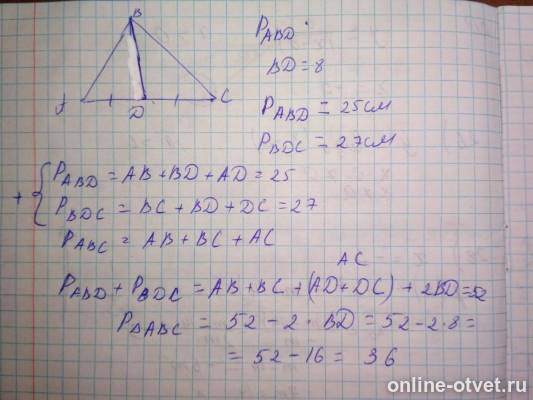 B
A
D
C
P_ABD
BD = 8
P_ABD = 25 см
P_BDC = 27 см
+ { P_ABD = AB + BD + AD = 25
P_BDC = BC + BD + DC = 27
P_ABC = AB + BC + AC
AC
P_ABD + P_BDC = AB + BC + (AD + DC) + 2BD = 52
P_ΔABC = 52 - 2 · BD = 52 - 2 · 8 =
= 52 - 16 = 36
online-otvet.ru